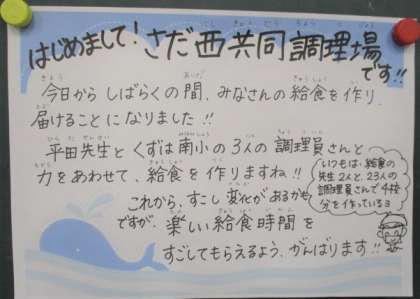 はじめまして！さだ西共同調理場です!!
今日から しばらくの間、みなさんの給食を作り、
届けることになりました!!
平田先生と くずは南小の 3人の 調理員さんと
力をあわせて、給食を 作りますね!!
これから、すこし 変化があるかも
ですが、楽しい給食時間を
すごしてもらえるよう、がんばります!!
いつもは、給食の
先生2人と、23人の
調理員さんで4校
分を作っているヨ